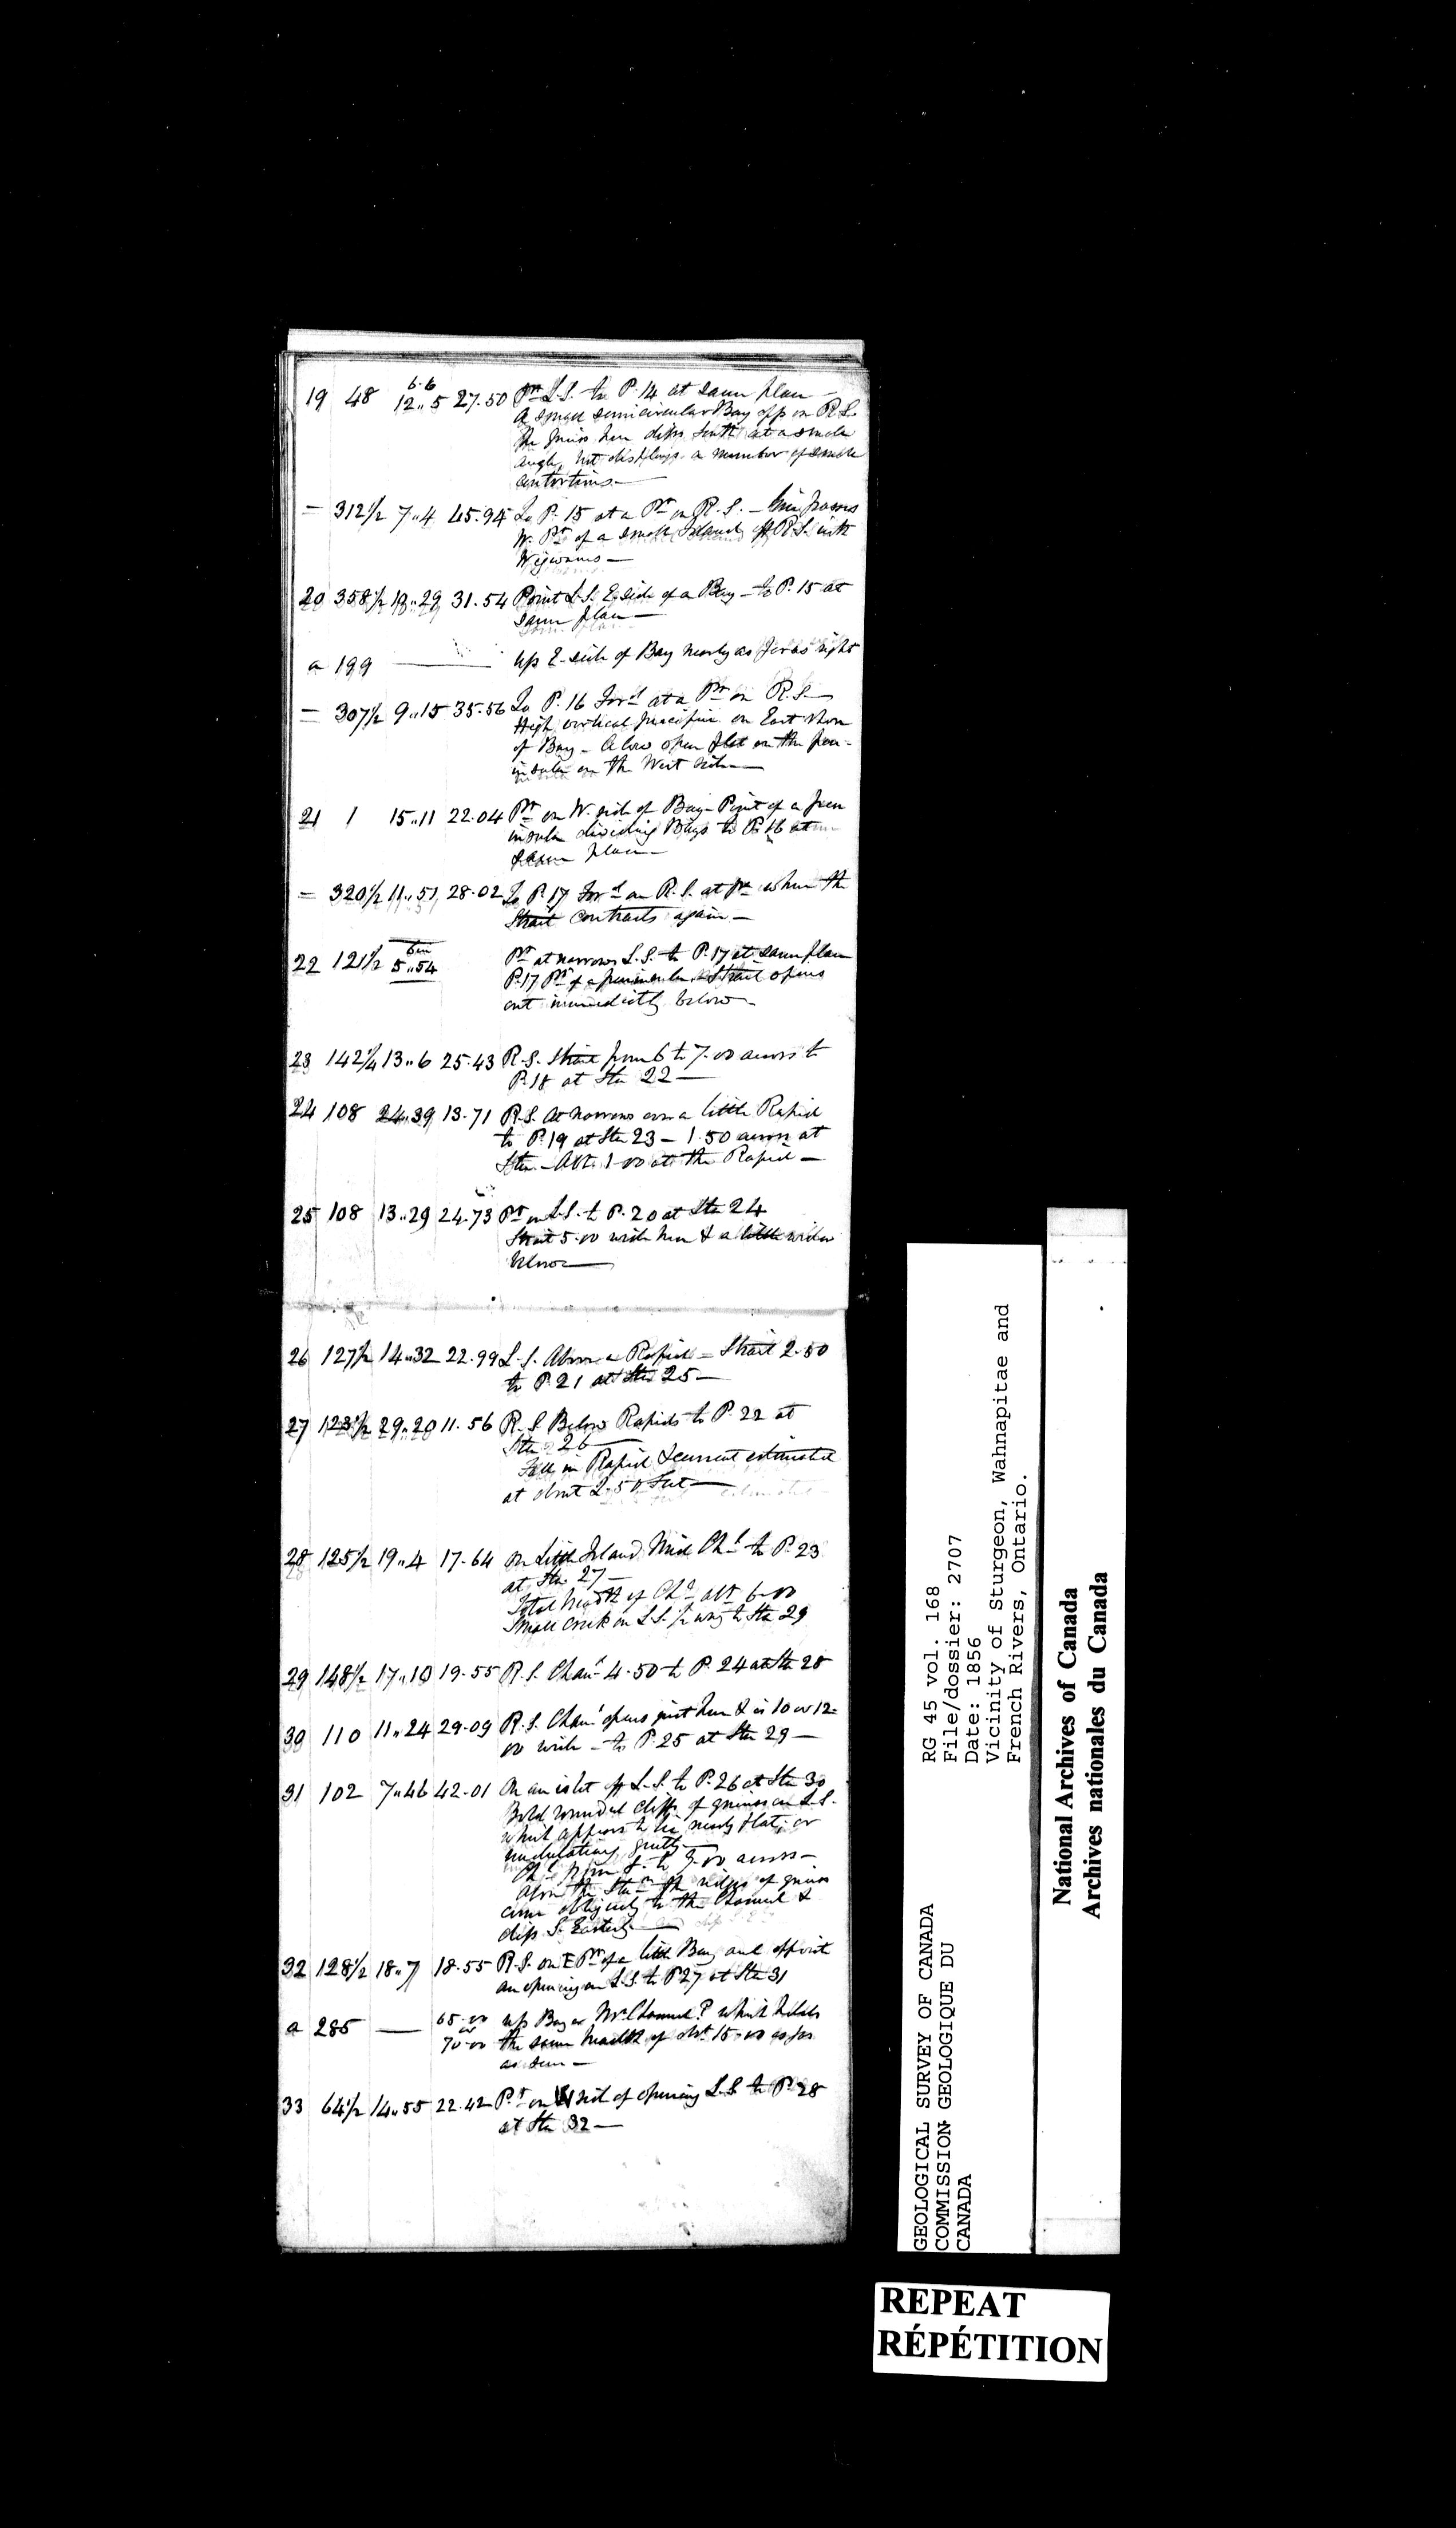 6.6
19 48 12..5 27.50 Pt L.S. to P.14 at same place —
A small semicircular Bay opp on R.S.
The gneiss here dips South at a small
angle, but displays a number of small
contortions —
— 312½ 7..4 45.94 To P. 15 at a Pt on R.S. — line passes
W. Pt of a small Island off R.S. with
Wigwams —
20 358½ 19..29 31.54 Point L.S. E. side of a Bay — to P. 15 at
same place —
a 199 — up E. side of Bay nearly as far as sight
= 307½ 9..15 35.56 To P. 16 Ford at a Pt on R.S. —
High vertical precipice on East shore
of Bay — A low open flat on the pen-
insula on the West side —
21 1 15..11 22.04 Pt on W. side of Bay — Point of a pen
insula dividing Bays to P. 16 at
same place —
= 320½ 11..51 28.02 To P. 17 Ford on R.S. at pt where the
Strait contracts again —
22 121½ 5..54 Pt at narrows L.S. to P. 17 at same place
P. 17 Pt of a peninsula. Strait opens
out immediately below —
23 142¼ 13..6 25.43 R.S. Strait from 6 to 7.00 across to
P. 18 at Stn 22 —
24 108 24..39 13.71 R.S. At narrows over a little Rapid
to P. 19 at Stn 23 — 1.50 across at
Stn. — Abt. 1.00 at the Rapid —
25 108 13..29 24.73 Pt on L.S. to P. 20 at Stn 24
Strait 5.00 wide here & a little wider
below —
26 127½ 14..32 22.99 L.S. Above a Rapid — Strait 2.50
to P. 21 at Stn 25 —
27 123½ 29..20 11.56 R.S. Below Rapids to P. 22 at
Stn 26 —
Fall in Rapid & current estimated
at about 2.50 Feet —
28 125½ 19..4 17.64 On Little Island Mid Chl to P. 23
at Stn 27 —
Total breadth of Chl abt 6.00
Small creek on L.S. ½ way to Stn 29
29 148½ 17..10 19.55 R.S. Chanl 4.50 to P. 24 at Stn 28
30 110 11..24 29.09 R.S. Chanl opens just here & is 10 or 12.
00 wide — to P. 25 at Stn 29 —
31 102 7..46 42.01 On an islet off L.S. to P. 26 at Stn 30
Bold rounded cliffs of gneiss on L.S.
which appears to lie nearly flat, or
undulating gently —
Chl from 8. to 9.00 across —
Above the Stn the ridges of gneiss
come obliquely to the Channel &
dips S. Easterly —
32 128½ 18..7 18.55 R.S. on E Pt of a little Bay and opposite
an opening on L.S. to P. 27 at Stn 31
a 285 — 65.00 up Bay or Nr. Channel? which holds
or
70.00 the same breadth of abt 15.00 as far
as seen —
33 64½ 14..55 22.42 Pt on W side of opening L.S. to P. 28
at Stn 32 —
GEOLOGICAL SURVEY OF CANADA
COMMISSION GEOLOGIQUE DU
CANADA
RG 45 vol. 168
File/dossier: 2707
Date: 1856
Vicinity of Sturgeon, Wahnapitae and
French Rivers, Ontario.
National Archives of Canada
Archives nationales du Canada
REPEAT
RÉPÉTITION